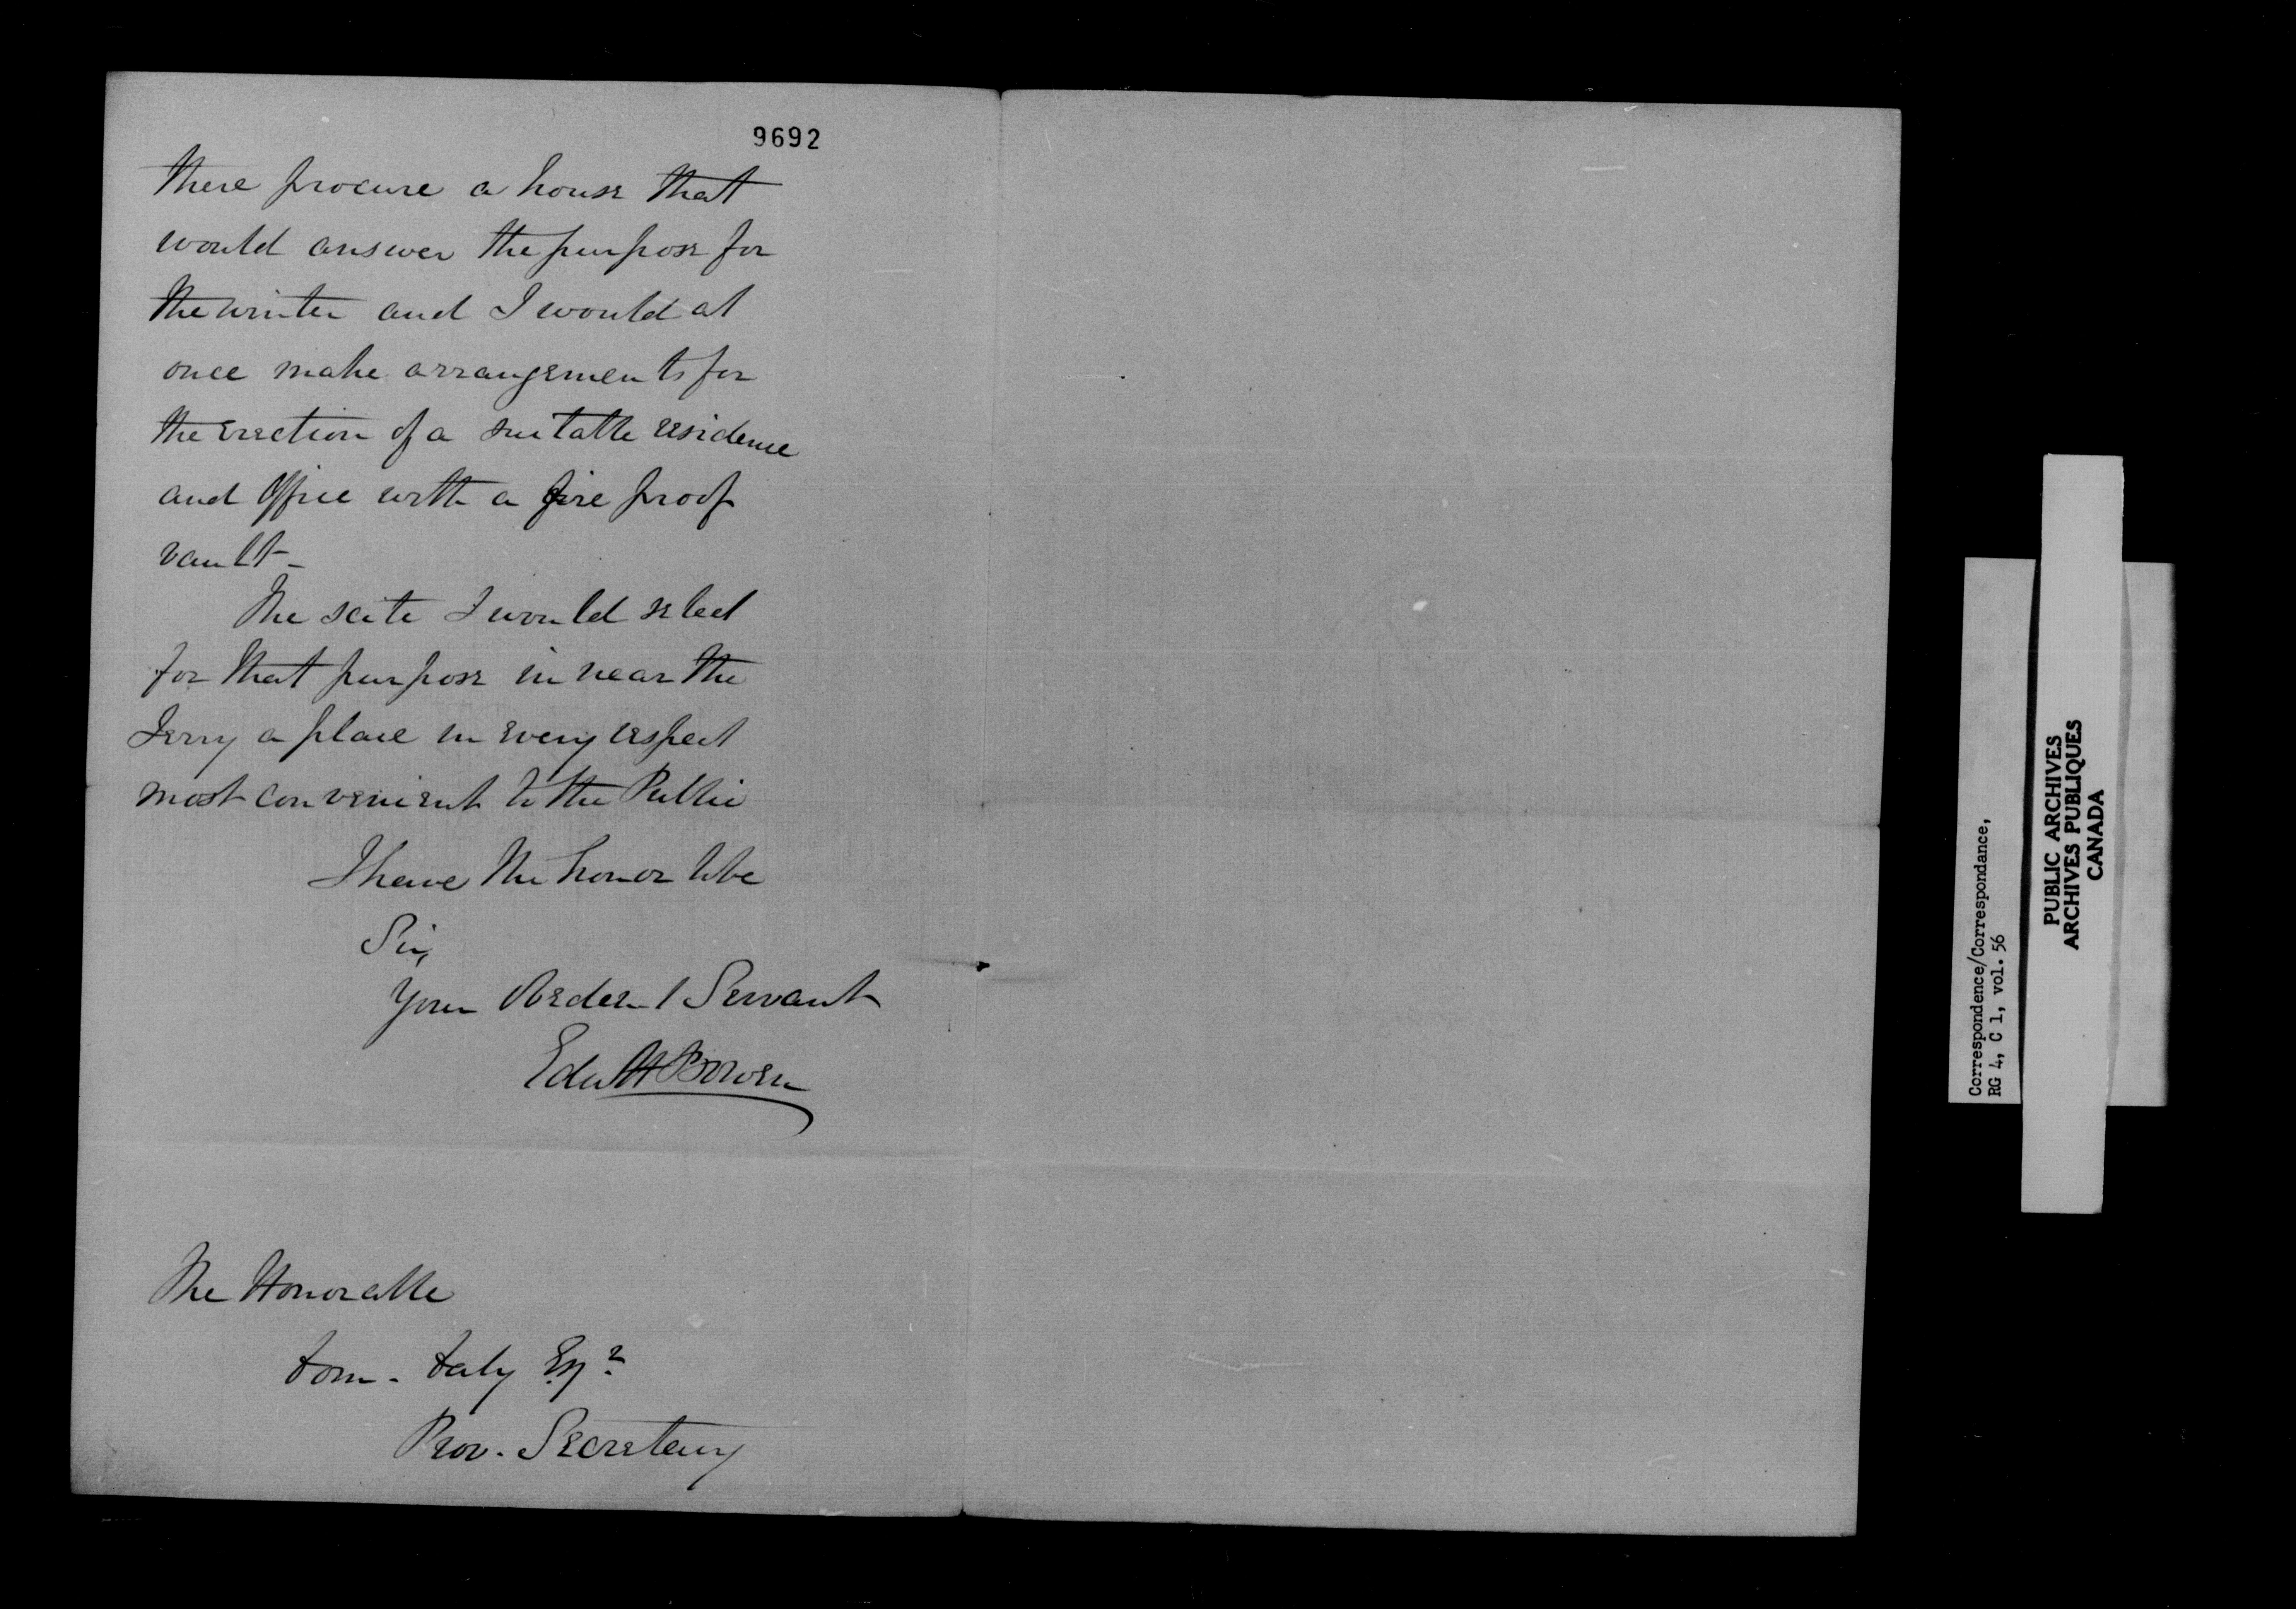 9692
there procure a house that
would answer the purpose for
the winter and I would at
once make arrangements for
the erection of a suitable residence
and Office with a fire proof
vault -
The scite I would select
for that purpose in near the
Ferry a place in every respect
most convenient to the Public
I have the honor to be
Sir,
Your Obedent Servant
Edw H Bowen
The Honorable
Dom. Daly Esqr.
Prov. Secretary
Correspondence/Correspondance,
RG 4, C 1, vol. 56
PUBLIC ARCHIVES
ARCHIVES PUBLIQUES
CANADA